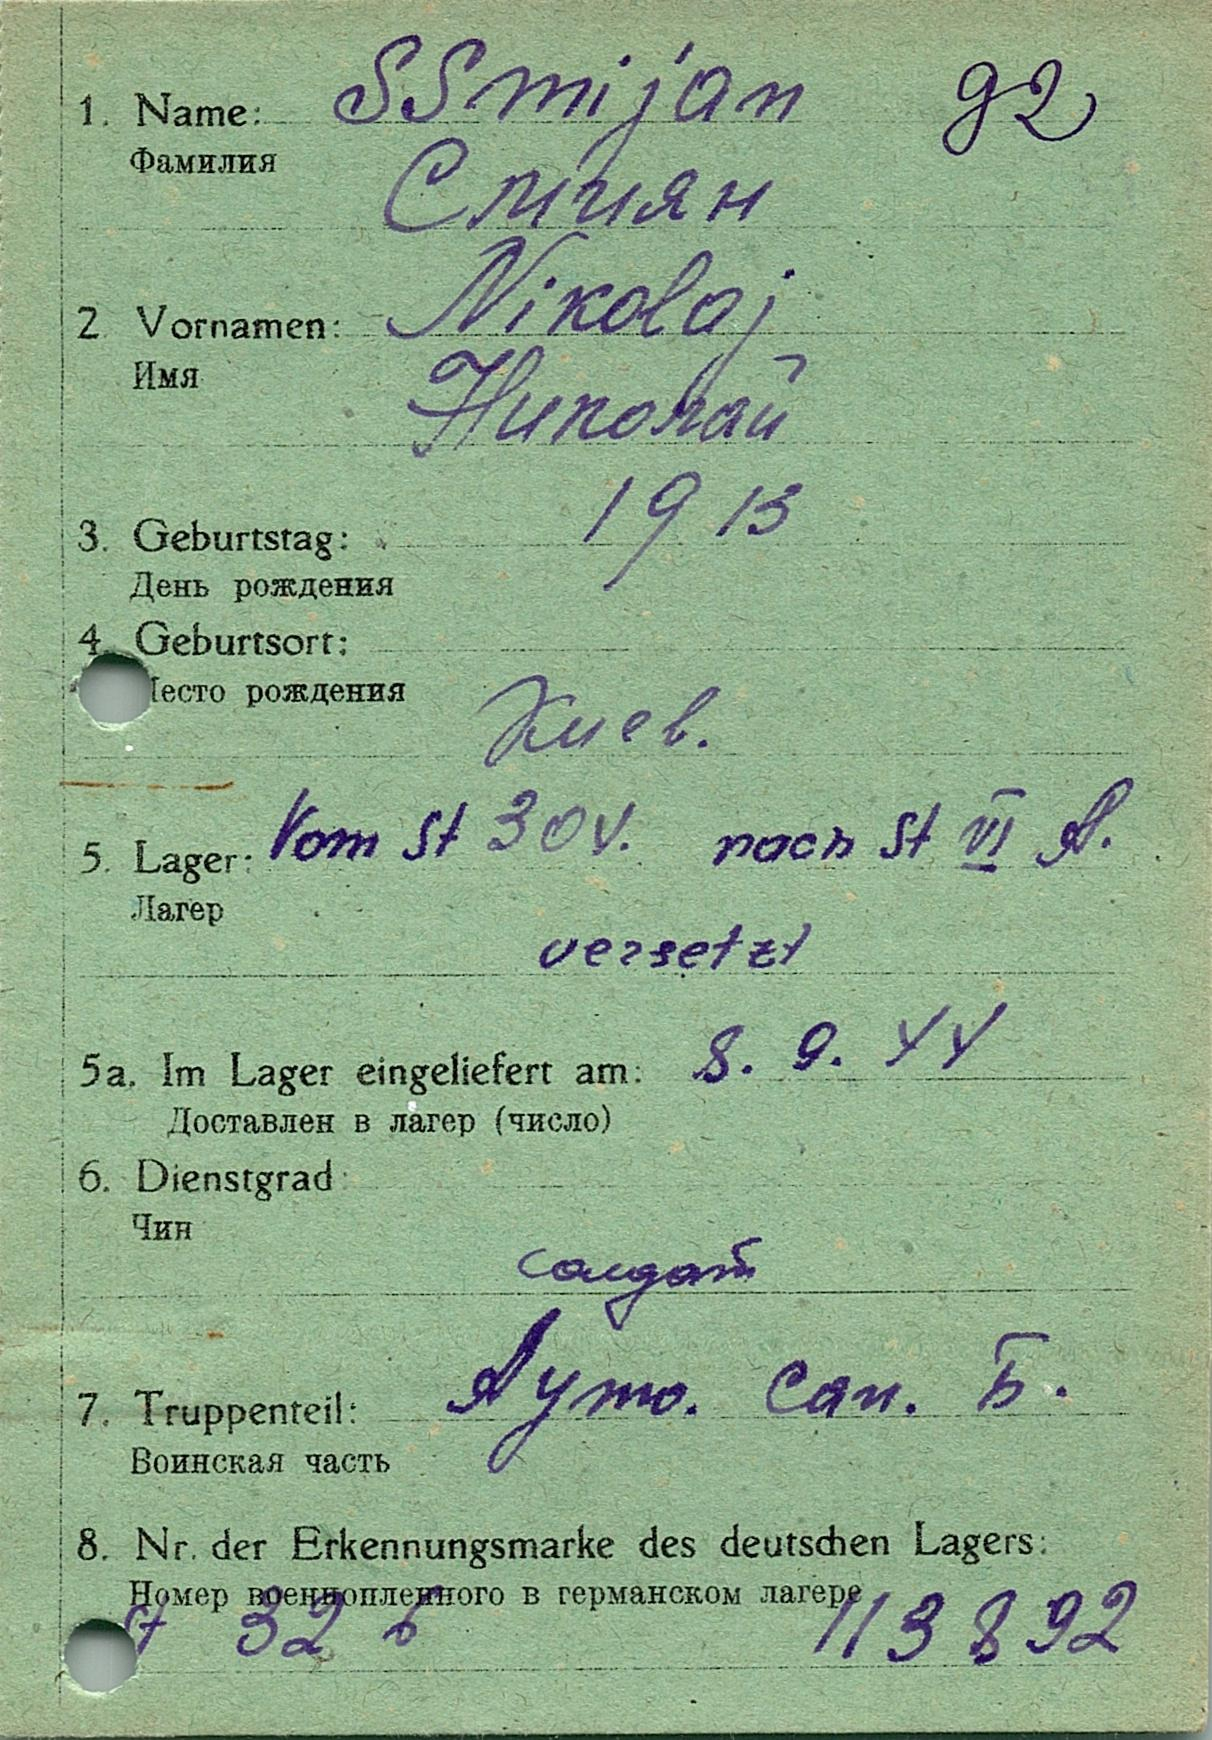 1. Name: SSmijan 92
Фамилия
Смиян
2 Vornamen: Nikolaj
Имя
Николай
3. Geburtstag: 1913
День рождения
4. Geburtsort:
есто рождения
Киев.
5. Lager: Vom St 30 V. nach St VI A.
Лагер
versetzt
5a. Im Lager eingeliefert am: 8. 9. 44
Доставлен в лагер (число)
6. Dienstgrad:
Чин
солдат
7. Truppenteil: Ауто. Сап. Б.
Воинская часть
8. Nr. der Erkennungsmarke des deutschen Lagers:
Номер военнопленного в германском лагере
St 326 113892